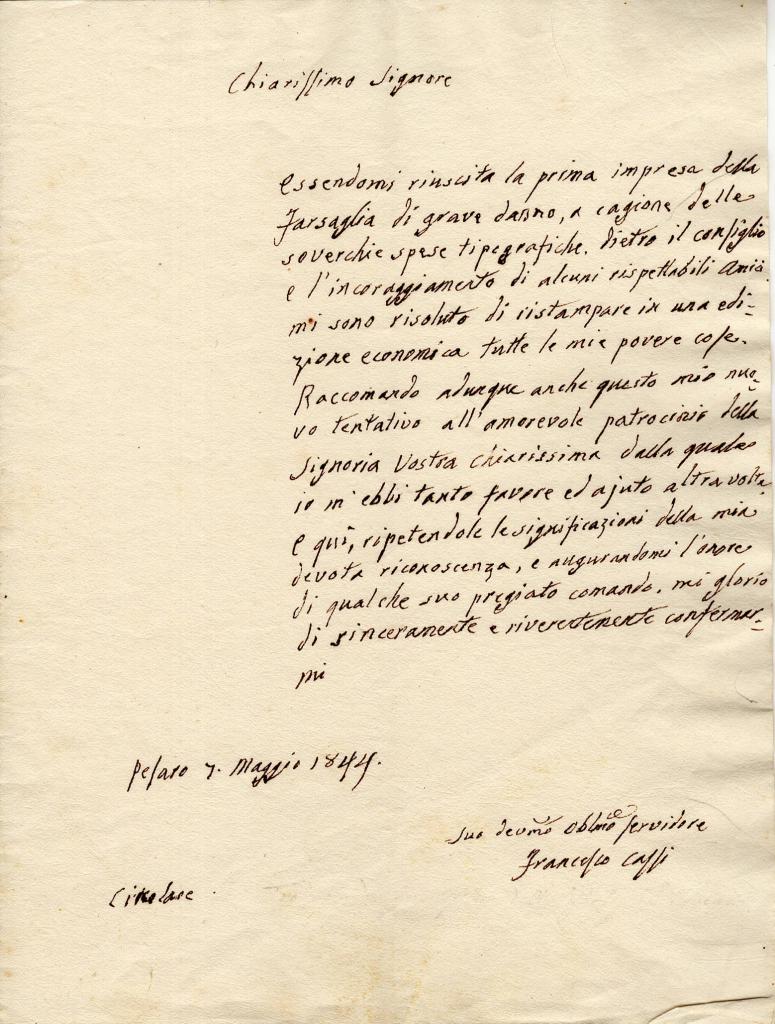 Chiarissimo Signore
Essendomi riuscita la prima impresa della
Farsaglia di grave danno, a cagione delle
soverchie spese tipografiche. Dietro il consiglio
e l'incoraggiamento di alcuni rispettabili Amici
mi sono risoluto di ristampare in una edi=
zione economica tutte le mie povere cose.
Raccomando adunque anche questo mio nuo=
vo tentativo all'amorevole patrocinio della
Signoria Vostra Chiarissima dalla quale
io m'ebbi tanto favore ed ajuto altra volta
E qui, ripetendole le significazioni della mia
devota riconoscenza, e augurandomi l'onore
di qualche suo pregiato comando, mi glorio
di sinceramente e riverentemente confermar=
mi
Pesaro 7. Maggio 1844.
Suo devmo oblmo servidore
Francesco Cassi
Circolare